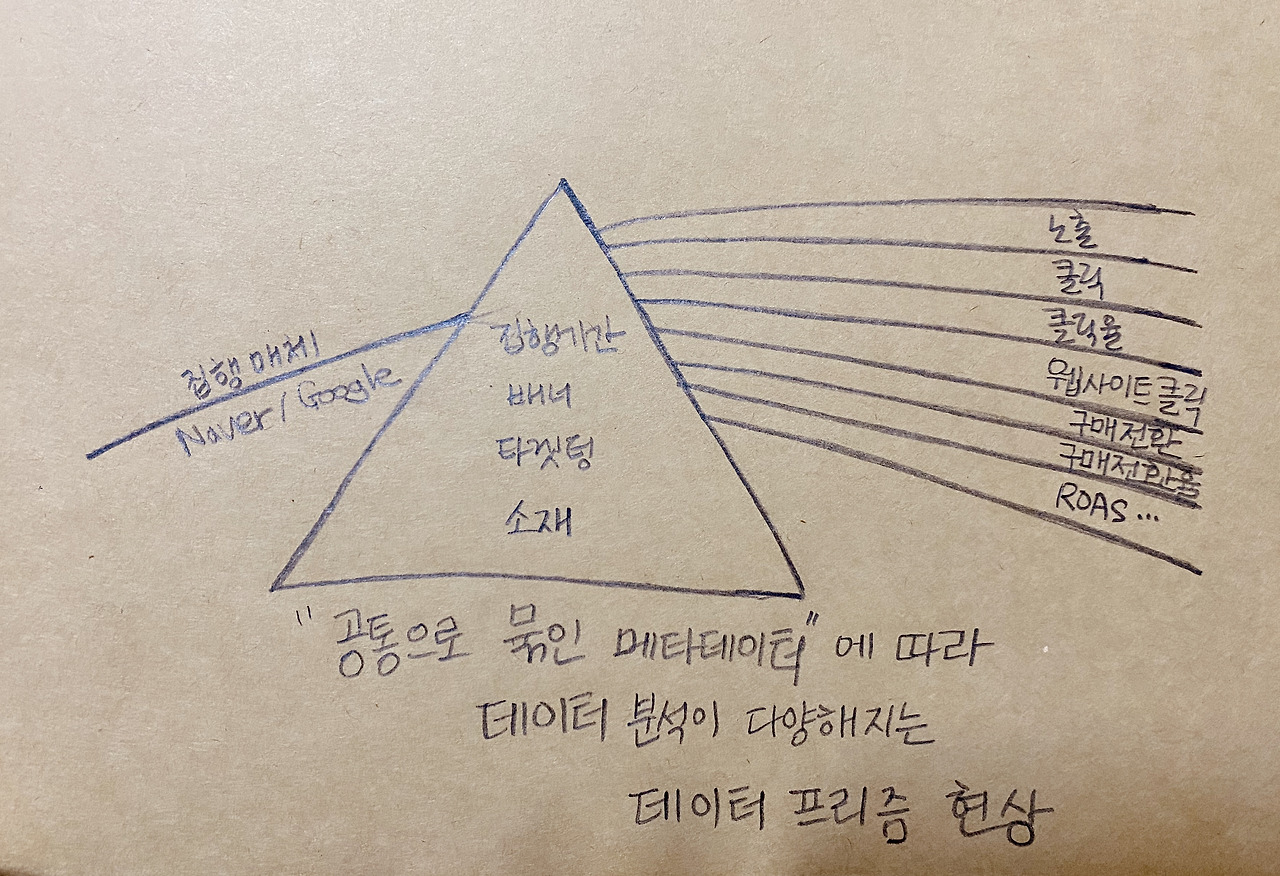 집행매체
Naver / Google
집행기간
배너
타겟텅
소재
노출
클릭
클릭율
웹사이트클릭
구매전환
구매전환율
ROAS ...
"공통으로 묶인 메타데이터"에 따라
데이터 분석이 다양해지는
데이터 프리즘 현상